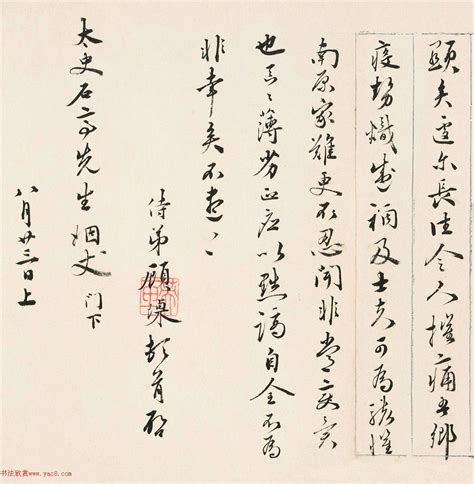 顕矣遽尔長往令人摧痛吾鄉
疫勢熾盛禍及士夫可為駭
南原家難更不忍聞非常
也薄劣正應以黜謫自全不為
非幸矣不
侍弟顧璘頓首啓
太史石亭先生姻丈 门下
八月廿三日上
书法欣赏www.yac8.com